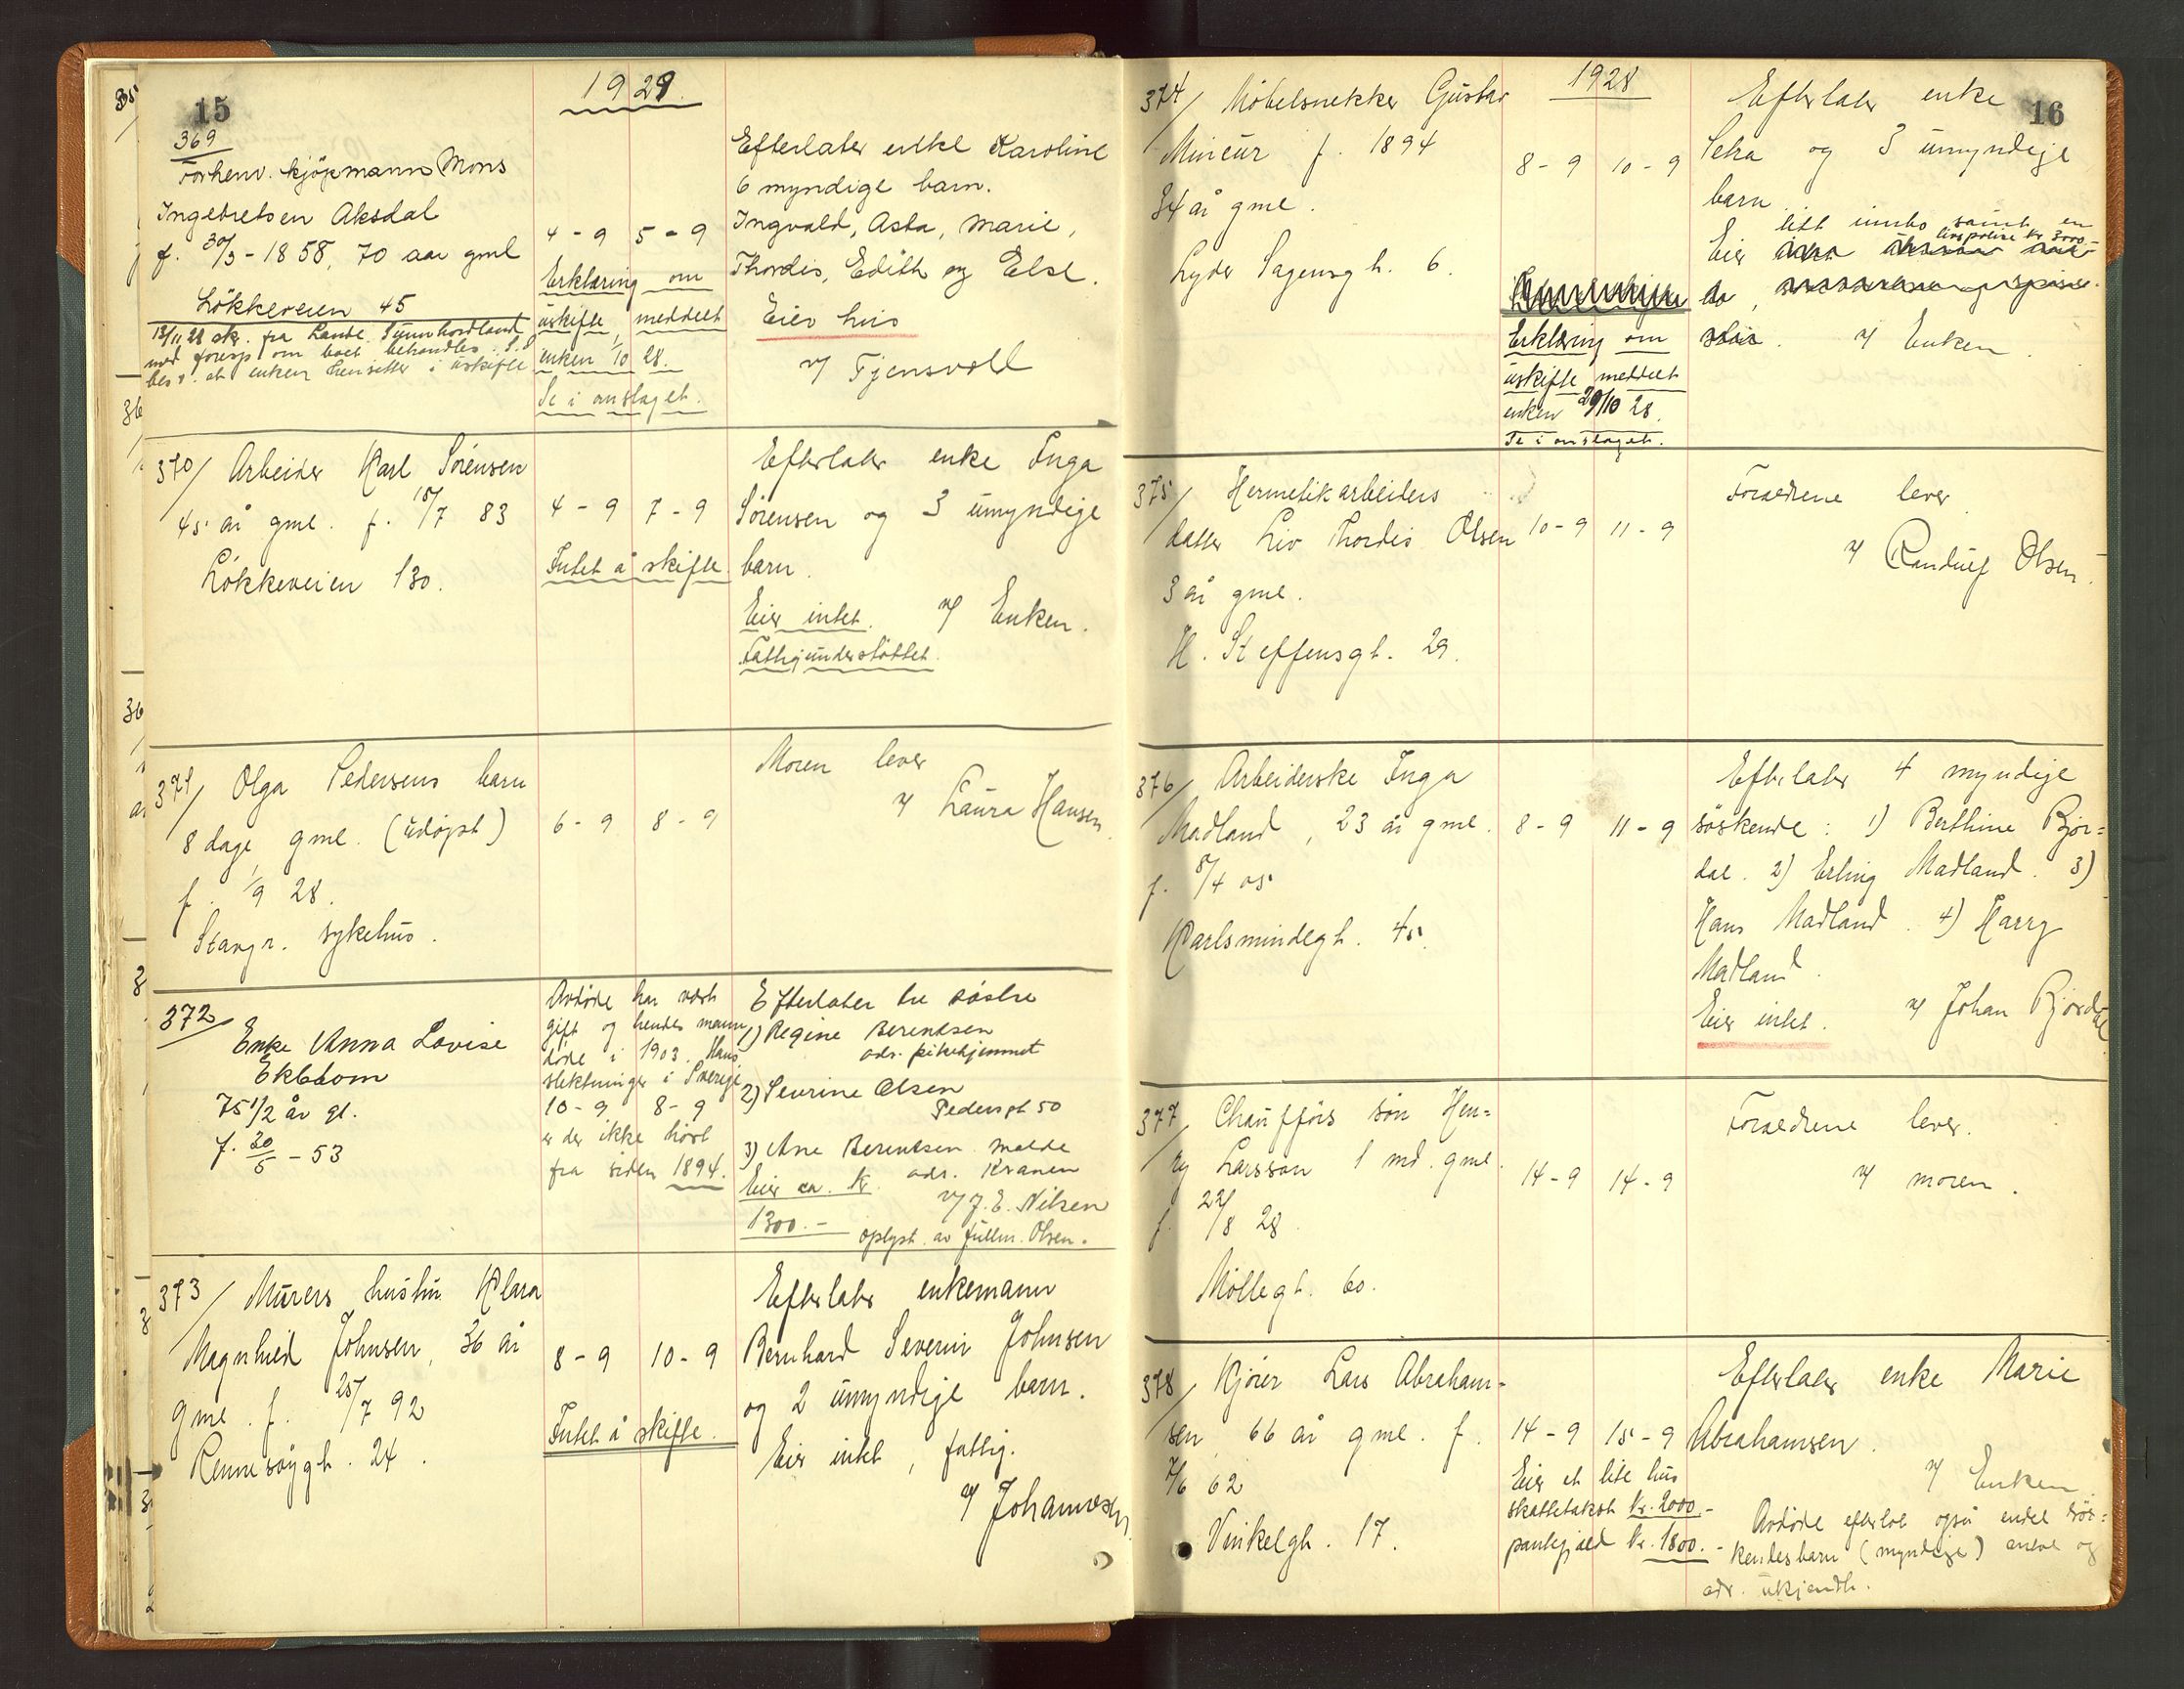 15
1929
369
Forhenv. kjøpmann Mons
Ingebretsen Aksdal
f. 30/3 - 1858, 70 aar gml
Løkkeveien 45
13/11 28 skr. fra Lensm. Sunnhordland
med foresp. om boet behandles.
besv. at enken hensitter i uskifte
4 - 9   5 - 9
Erklæring om
uskifte meddelt
enken /10 28.
Se i omslaget.
Efterlater enke Karoline
6 myndige barn.
Ingvald, Asta, Marie,
Thordis, Edith og Else.
Eier hus
v/ Tjensvold
370/ Arbeider Karl Sörensen
45 år gml. f. 18/7 83
Lökkeveien 130.
4 - 9   7 - 9
Intet å skifte
Efterlater enke Inga
Sörensen og 3 umyndige
barn.
Eier intet. v/ Enken.
Fattigunderstöttet.
371/ Olga Pedersens barn
8 dage gml. (udøpt)
f. 1/9 28.
Stavgr. sykehus.
6 - 9   8 - 9
Moren lever
v/ Laura Hansen.
372/
Enke Anna Lovise
Ekblom
75 1/2 år gl.
f. 30/5 - 53
Avdöde har vært
gift og hendes mann
döde i 1903. Hans
slektninger i Sverige
10 - 9   8 - 9
er der ikke hört
fra siden 1894.
Efterlater tre søstre
1) Regine Berentsen
adr. pikehjemmet
2) Sevrine Olsen
Pedersgt 50
3) Ane Berentsen Molde
adr. Kranen
Eier ca. kr. v/ J. E. Nilsen
1300.- oplyst av fullm. Olsen.
373/ Murers hustru Klara
Magnhild Johnsen, 36 år
gml. f. 25/7 92
Rennesöygt. 24.
8 - 9   10 - 9
Intet å skifte.
Efterlater enkemann
Bernhard Severin Johnsen
og 2 umyndige barn.
Eier intet, fattig.
v/ Johannesen
16
1928
374/ Möbelsnekker Gustav
Mineur f. 1894
34 år gml.
Lyder Sagensgt. 6.
8 - 9   10 - 9
Erklæring om
uskifte meddelt
enken 29/10 28.
Se i omslaget.
Efterlater enke
og 3 umyndige
barn.
litt innbo samt en
livspolise kr. 3000.-
Eier
v/ Enken.
375/ Hermetikarbeiders
datter Liv Thordis Olsen
3 år gml.
H. Steffensgt. 29.
10 - 9   11 - 9
Foraldrene lever
v/ Randulf Olsen.
376/ Arbeiderske Inga
Madland, 23 år gml.
f. 8/4 05
Karlsmindegt. 45.
8 - 9   11 - 9
Efterlater 4 myndige
söskende: 1) Berthine Bjor=
dal. 2) Erling Madland. 3)
Hans Madland. 4) Harry
Madland.
Eier intet. v/ Johan Bjordal
377/ Chaufförs sön Hen=
ry Larsson 1 md. gml.
f. 22/8 28.
Möllegt. 60.
14 - 9   14 - 9
Foraldrene lever.
v/ moren.
378/ Kjörer Lars Abraham-
sen, 66 år gml. f.
7/6 62
Vinkelgt. 17.
14 - 9   15 - 9
Eier et lite hus
skattetakst kr. 2000.-
pantegjæld kr. 1800.-
Efterlater enke Marie
Abrahamsen.
v/ Enken
Avdöde efterlot også endel sös=
kendebarn (myndige) antal og
adr. ukjendt.